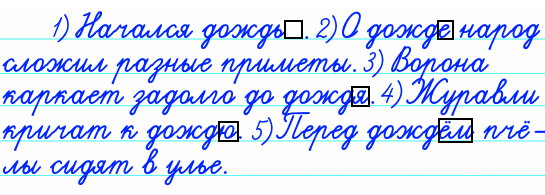 1) Начался дождь. 2) О дожде народ
сложил разные приметы. 3) Ворона
каркает задолго до дождя. 4) Журавли
кричат к дождю. 5) Перед дождём пчё-
лы сидят в улье.